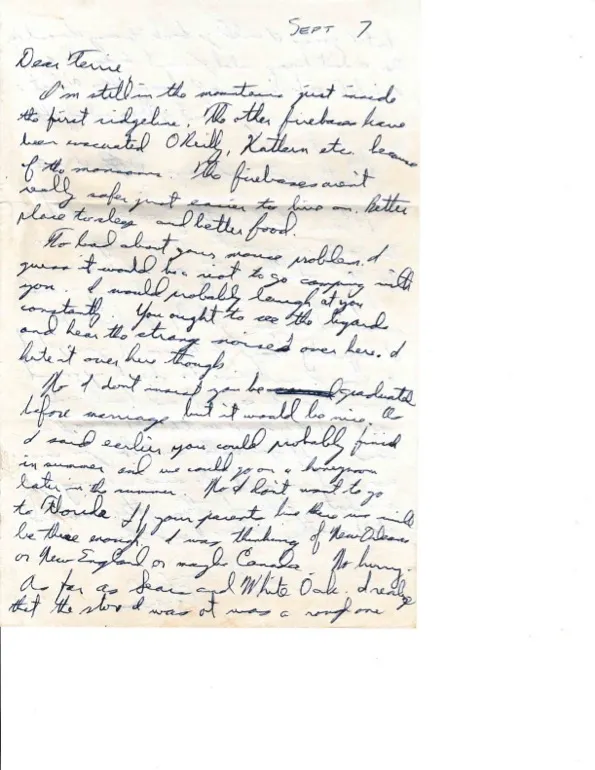 SEPT 7
Dear Terrie,
I'm still in the mountains just inside
the first ridgeline. The other firebases have
been evacuated O'Reilly, Kathryn etc. because
of the monsoons. The firebases aren't
really safer just easier to live on. Better
place to sleep and better food.
To bad about your mouse problem. I
guess it would be a riot to go camping with
you. I would probably laugh at you
constantly. You ought to see the lizards
and hear the strange noises over here. I
hate it over here though.
No I don't insist you be graduated
before marriage but it would be nice. As
I said earlier you could probably finish
in summer and we could go on a honeymoon
later in the summer. No I don't want to go
to Florida. If your parents live there we will
be there enough. I was thinking of New Orleans
or New England or maybe Canada. No hurry.
As far as Sears and White Oak. I realize
that the store I was at was a rough one